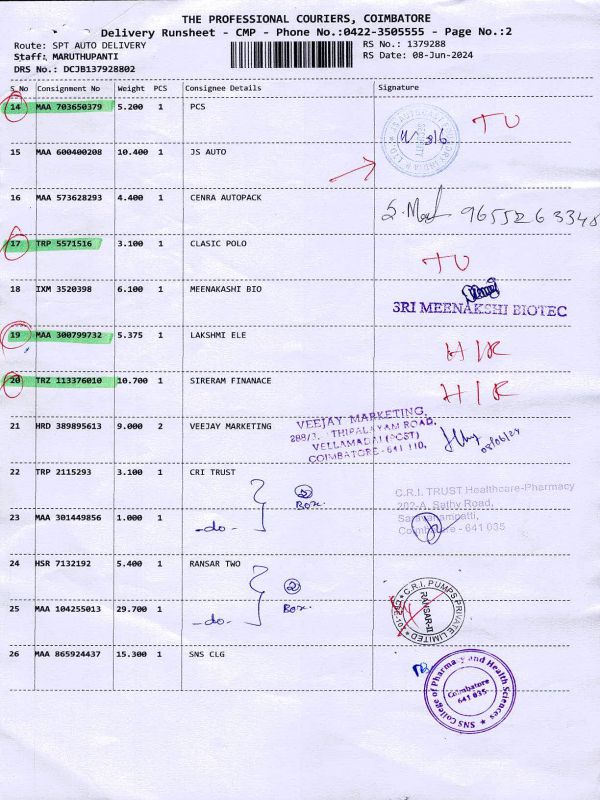 THE PROFESSIONAL COURIERS, COIMBATORE
Delivery Runsheet - CMP - Phone No.:0422-3505555 - Page No.:2
Route: SPT AUTO DELIVERY
RS No.: 1379288
Staff: MARUTHUPANTI
RS Date: 08-Jun-2024
DRS No.: DCJB137928802
S.No Consignment No Weight PCS Consignee Details Signature
14 MAA 703650379 5.200 1 PCS TU
15 MAA 600400208 10.400 1 JS AUTO
16 MAA 573628293 4.400 1 CENRA AUTOPACK 9655263348
17 TRP 5571516 3.100 1 CLASIC POLO TU
18 IXM 3520398 6.100 1 MEENAKSHI BIO
SRI MEENAKSHI BIOTEC
19 MAA 300799732 5.375 1 LAKSHMI ELE H/K
20 TRZ 113376010 10.700 1 SIRERAM FINANACE H/K
21 HRD 389895613 9.000 2 VEEJAY MARKETING
VEEJAY MARKETING,
288/3, THIPALAYAM ROAD,
VELLAMADAI (POST)
COIMBATORE - 641 110.
08/06/24
22 TRP 2115293 3.100 1 CRI TRUST
-do-
② Box.
C.R.I. TRUST Healthcare-Pharmacy
202-A, Sathy Road,
Saravanampatti,
Coimbatore - 641 035
23 MAA 301449856 1.000 1
24 HSR 7132192 5.400 1 RANSAR TWO
-do-
② Box.
C.R.I. PUMPS PRIVATE LIMITED
RANSAR-II
25 MAA 104255013 29.700 1
26 MAA 865924437 15.300 1 SNS CLG
SNS College of Pharmacy and Health Sciences
Coimbatore
641 035